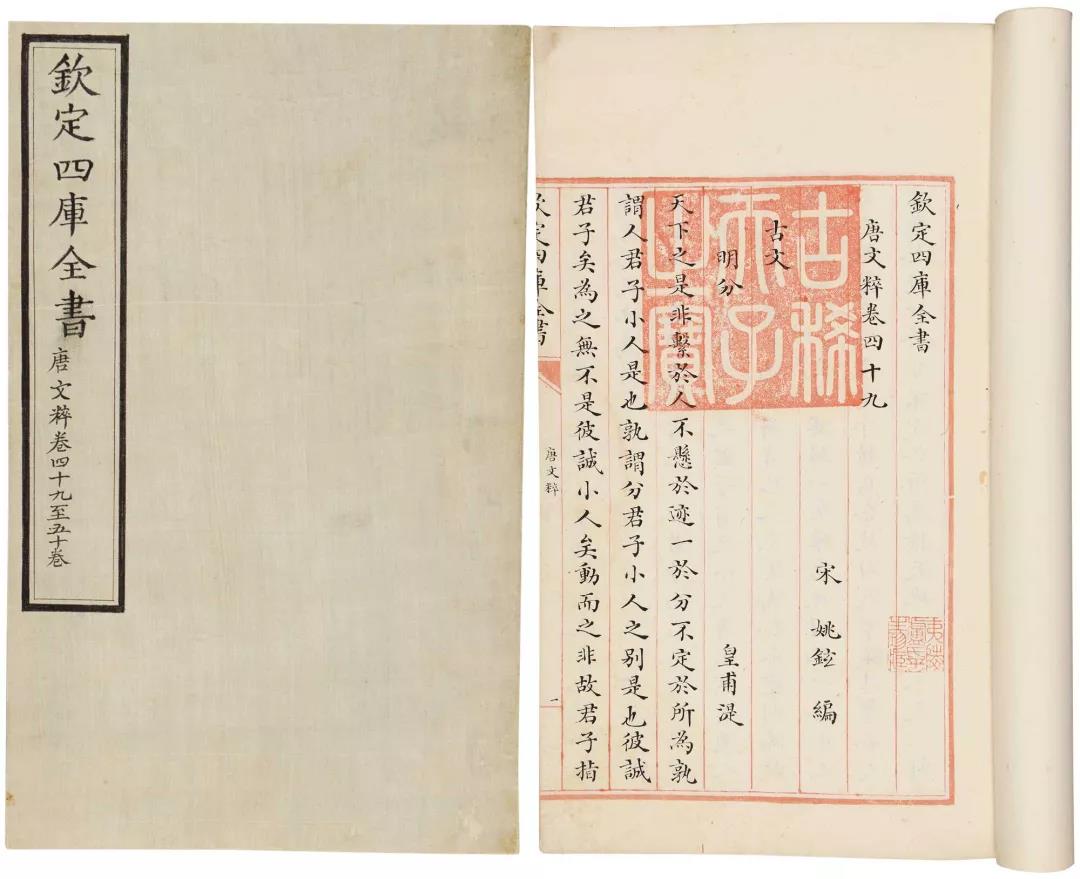 欽定四庫全書
唐文粹卷四十九至五十卷
欽定四庫全書
唐文粹卷四十九
宋 姚鉉 編
古文
明分
皇甫湜
天下之是非繫於人不懸於迹一於分不定於所為孰
謂人君子小人是也孰謂分君子小人之别是也彼誠
君子矣為之無不是彼誠小人矣動而之非故君子指
欽定四庫全書
唐文粹
一
古稀
天子
之寶